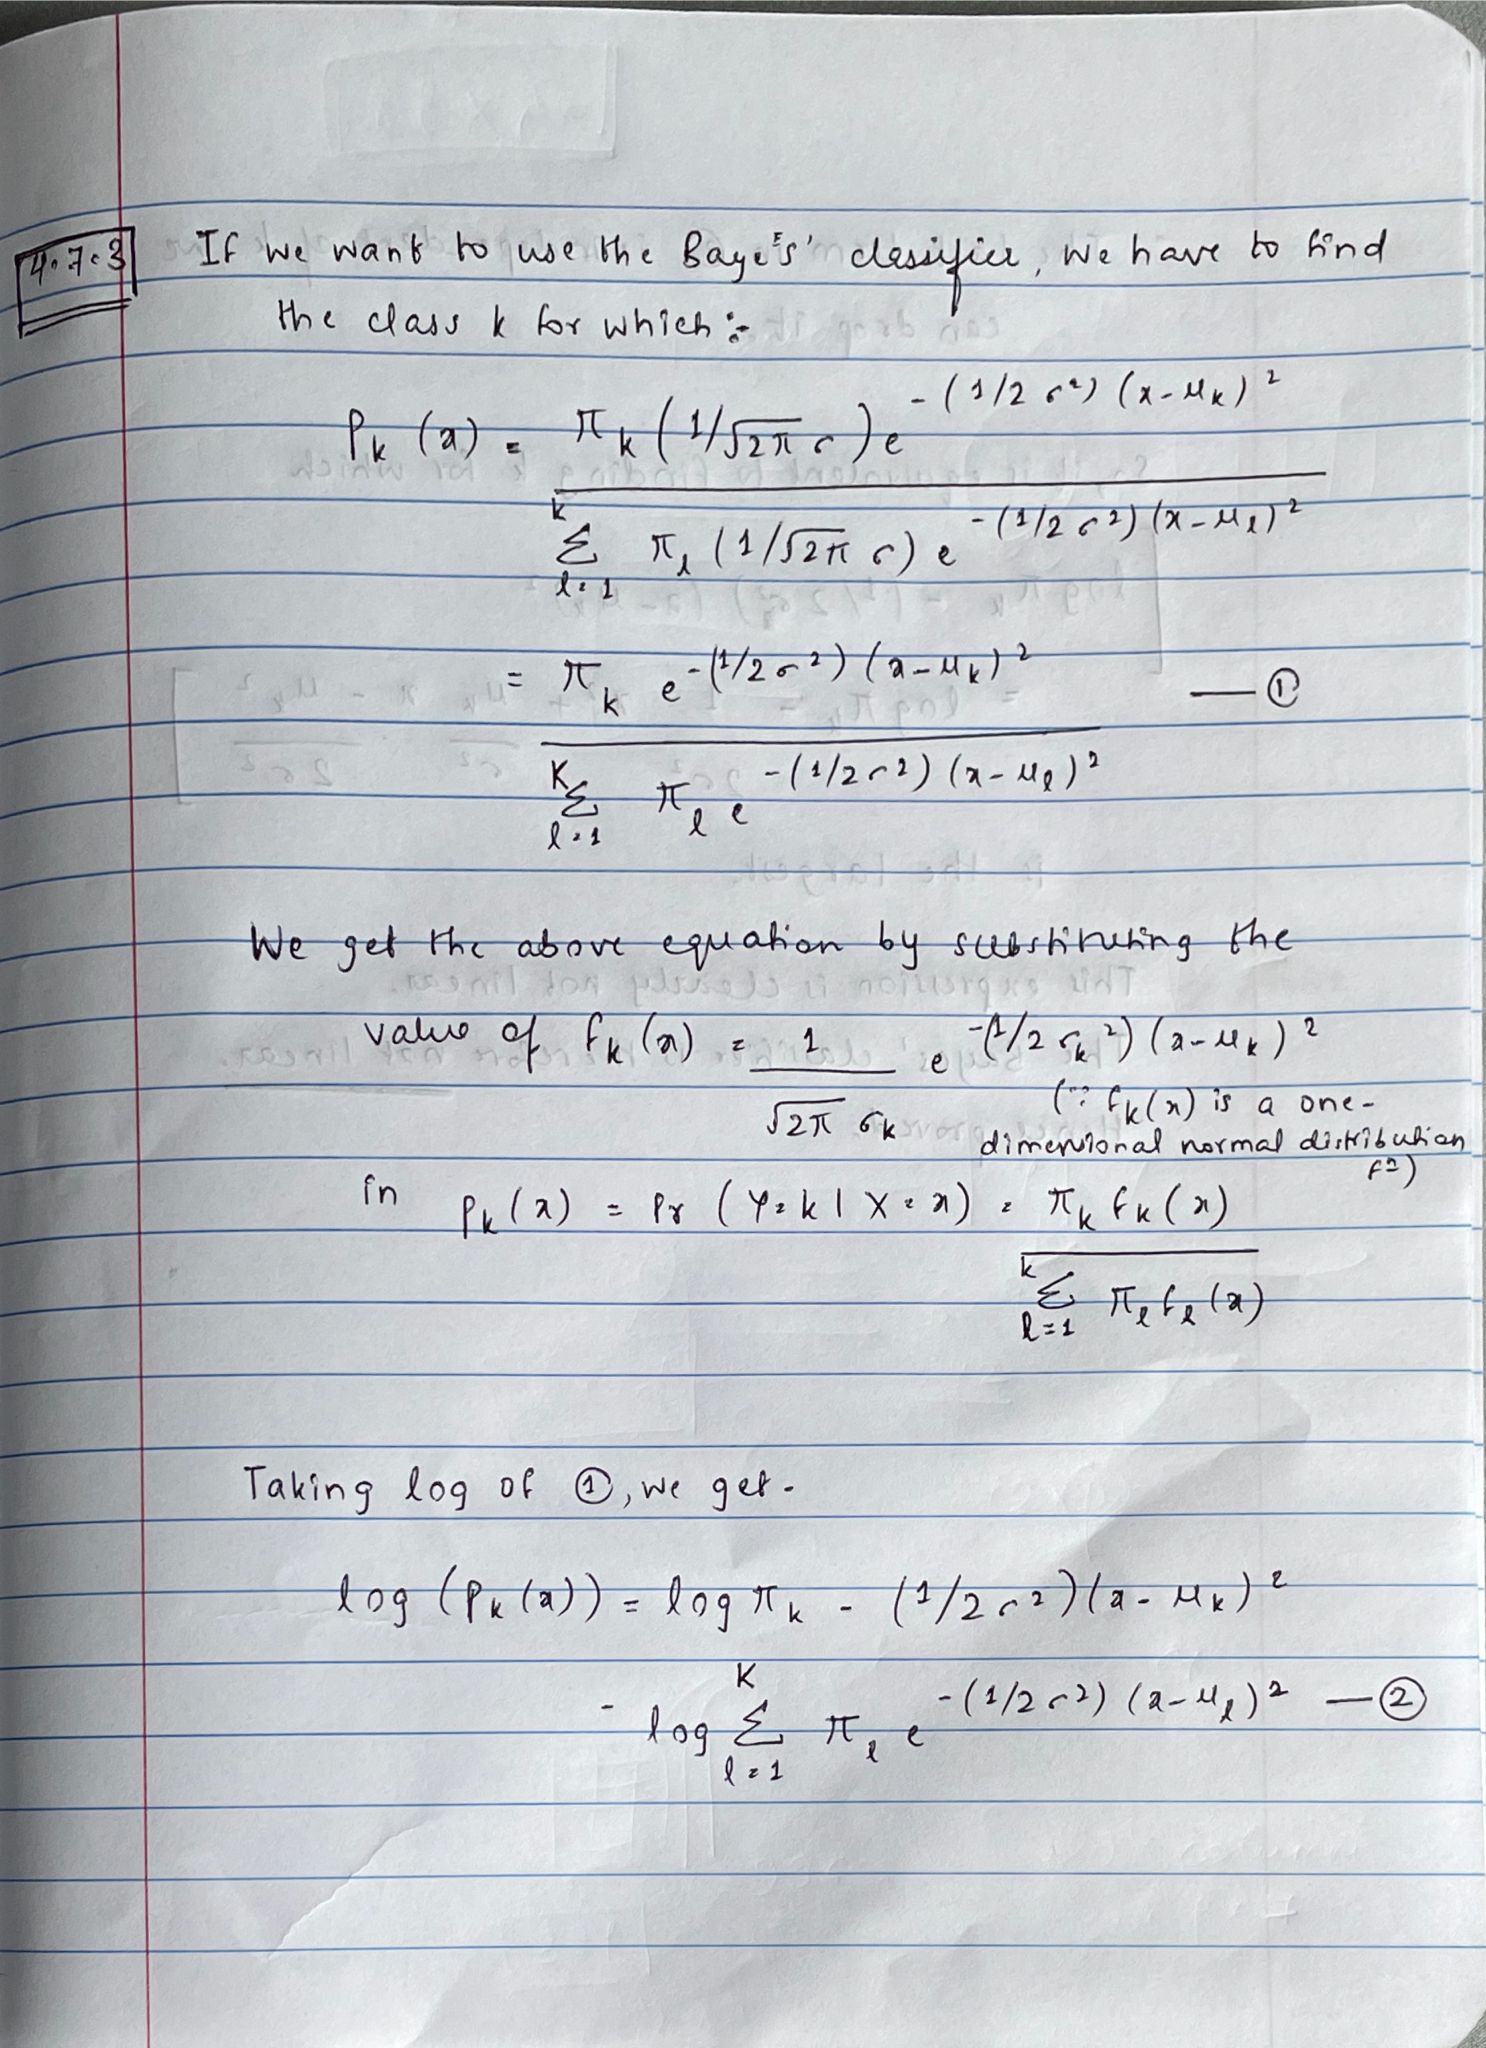 4.7.3 If we want to use the Baye's' classifier, we have to find
the class k for which :-
Pk (x) = πk (1/√2π σ) e -(1/2 σ²) (x-μk)²
K Σ l=1 πl (1/√2π σ) e -(1/2 σ²) (x-μl)²
= πk e -(1/2σ²) (x-μk)² — ①
K Σ l=1 πl e -(1/2σ²) (x-μl)²
We get the above equation by substituting the
value of fk (x) = 1 e -(1/2 σk²) (x-μk)²
√2π σk (∵ fk(x) is a one-
dimensional normal distribution
in Pk (x) = Pr (Y=k | X=x) = πk fk (x)
K Σ l=1 πl fl (x)
Taking log of ①, we get -
log (Pk (x)) = log πk - (1/2σ²)(x-μk)²
- log K Σ l=1 πl e -(1/2σ²) (x-μl)² — ②